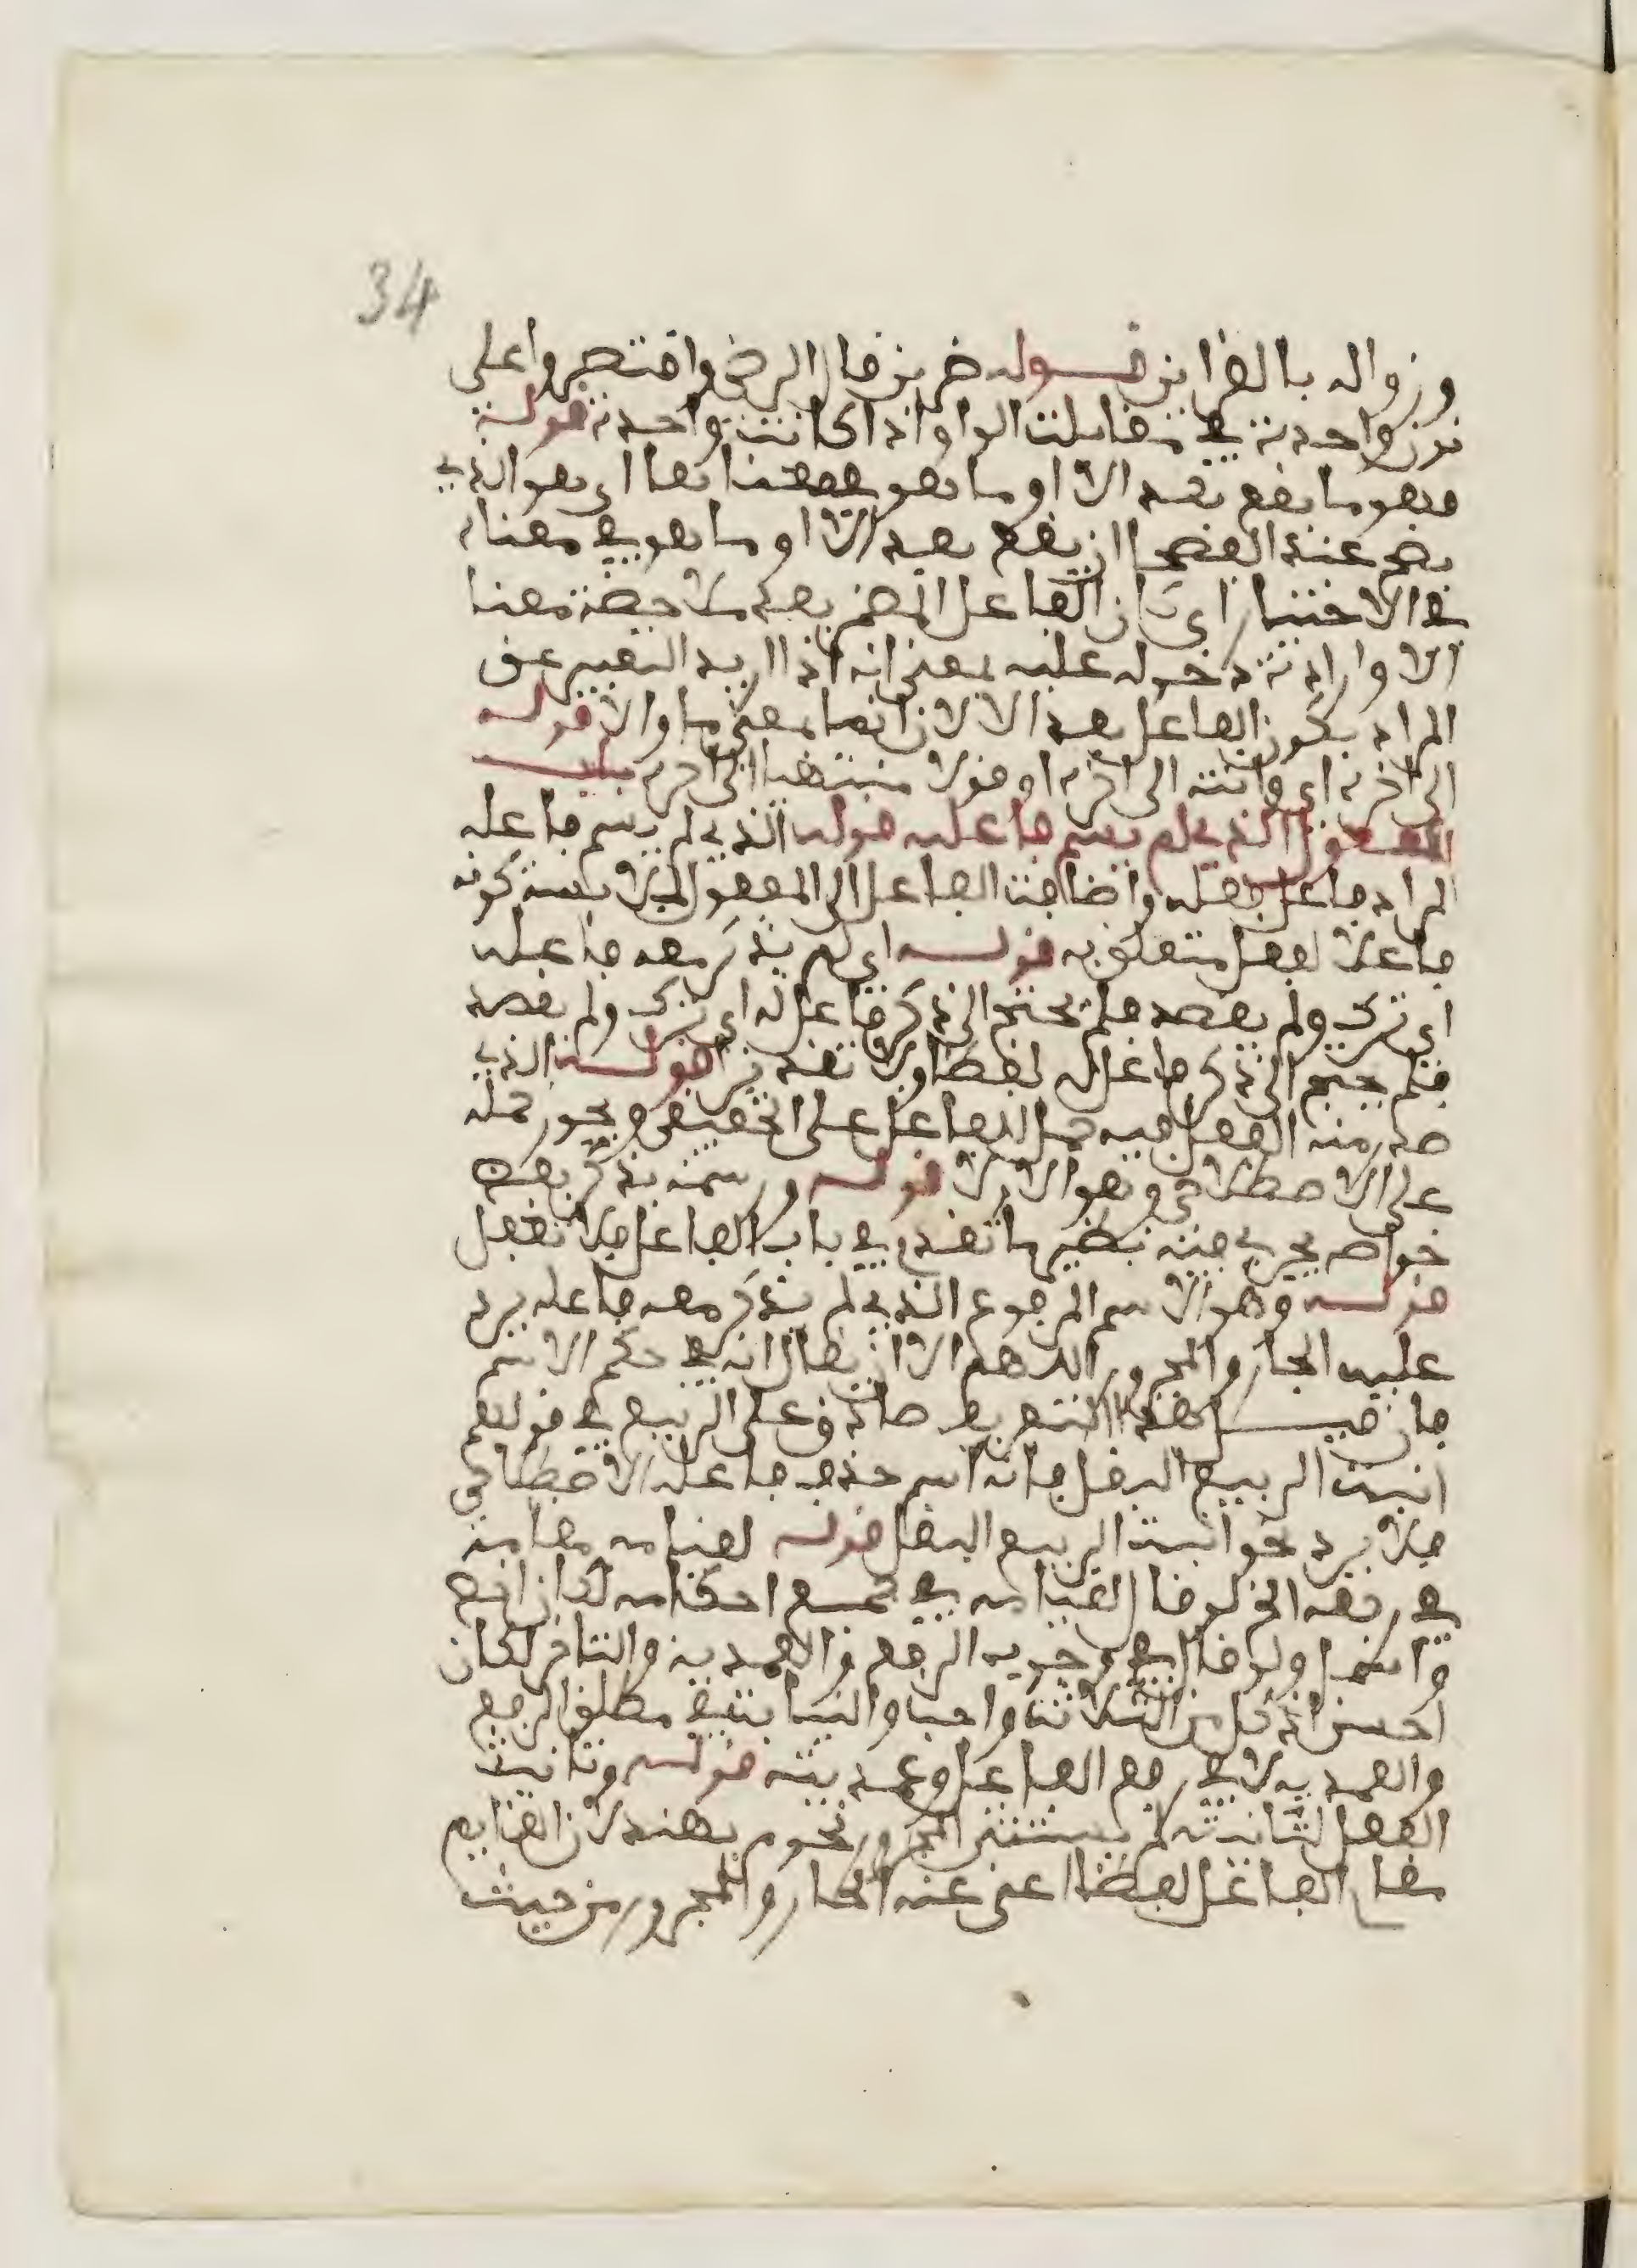 34
وزواله بالقراين قـــوله ضربن قال الرضي واقتصروا على
نون واحدة في مقابلت الواو اذا كانت واحدة قولــه
فهو ما يقع بعد الا او ما هو بمعناها اي هو الذي
يصح عند الفصحا ان يقع بعد الا او ما هو في معناه
في الاختيار اي بان الفاعل المضمر بعد ملاحظة معنا
الا وارادة دخوله عليه بمعنى انه اذا اريد التعبير عن
المراد يكون الفاعل بعد الا لان انما بمعنى ما والا قولــه
الى اخره اي وانته الى اخره او قولا منتهيا الى اخره بـاب
المفعول الذي لم يسم فاعله قوله الذي لم يسم فاعله
المراد فاعل فعله واضافت الفاعل الى المفعول لملابسة كونه
فاعلا لفعل متعلق به قولــه اي لم يذكر معه فاعله
اي ترك ولم يقصد فلم يحتج الى ذكر فاعله اي ترك ولم يقصد
فلم يحتج الى ذكر فاعله لفظا ولا تقديرا قولــه الذي
صدر منه الفعل فيه حمل الفاعل على الحقيقي ويجوز حمله
على الاصطلاحي وهو الاولا قولــه ورسمه بذكر بعض
خواصه يجري فيه نظير ما تقدم في باب الفاعل فلا تغفل
قولــه وهو الاسم المرفوع الذي لم يذكر معه فاعله يرد
عليه الجار والمجرور اللهم الا ان يقال انه في حكم الاسم
فان قيـــل هذا التعريف صادق على الربيع في قولهم
انبت الربيع البقل فانه اسم حذف فاعله الاصطلاحي
فلا يرد نحو انبت الربيع البقل قولــه لقيامه مقامه
في رفعه الخ لو قال لقيامه في جميع احكامه لكان انفع
واشمل ولو قال في وجوب الرفع والعمدية والتاخر لكان
احسن اذ كل من الثلاثة واجبا والنيابة في مطلق الرفع
والعمدية لا في رفع الفاعل وعمديته قولــه وتانيث
الفعل لتانيثه لم يستثنى المجرور نحو مر بهند لان القايم
مقام الفاعل لفظا اعنى عنه الجار والمجرور من حيث